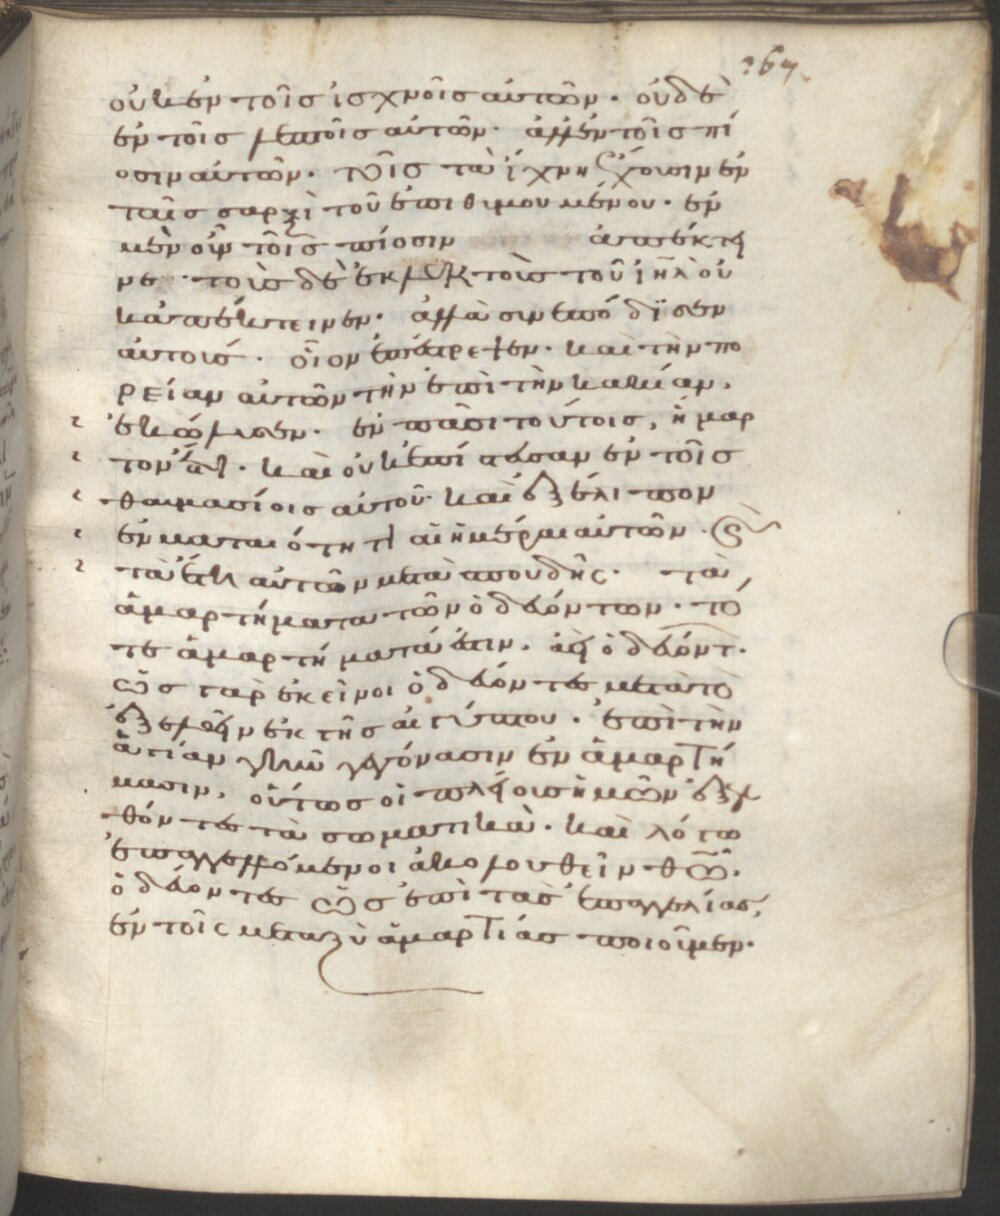 267
οὐκ ἐν τοῖσ ἰσχνοῖσ αὐτῶν· οὐδὲ
ἐν τοῖσ λεπτοῖσ αὐτῶν· ἀλλ' ἐν τοῖσ πί
οσιν αὐτῶν· τοῖσ τὰ ἴχνη ἔχουσιν ἐν
ταῖσ σαρξὶ τοῦ ἐπιθιμουμένου· ἐν
μὲν οὖν τοῖσ πίοσιν ἀπέκτει
νε· τοὺσ δὲ ἐκλεκτοὺσ τοῦ ἰηλ οὐ
κ ἀπέκτεινεν· ἀλλὰ συνεπόδϊσεν
αὐτούσ· οἷον ἐπέστρεψεν· καὶ τὴν πο
ρείαν αὐτῶν τὴν ἐπὶ τὴν κακίαν,
ἐκώλυσεν· ἐν πᾶσι τούτοισ, ἥμαρ
τον ἔτι· καὶ οὐκ ἐπίστευσαν ἐν τοῖσ
θαυμασίοισ αὐτοῦ· καὶ ἐξέλιπον
ἐν ματαιότητι αἱ ἡμέραι αὐτῶν· καὶ
τὰ ἔτη αὐτῶν μετὰ σπουδῆς· τὰ
ἁμαρτήματα τῶν ὁδευόντων· τό
τε ἁμαρτήματά ἐστιν, ὁδεύοντ·
ὥσπερ ἐκεῖνοι ὁδεύοντεσ μετὰ τὸ
ἐξελθεῖν ἐκ τῆσ αἰγύπτου· ἐπὶ τὴν
ἁγίαν γῆν γεγόνασιν ἐν ἁμαρτή
μασιν, οὕτωσ οἱ πλείουσ ἡμῶν ἐξελ
θόντεσ τὰ σωματικὰ· καὶ λόγω
ἐπαγγελλόμενοι ἀκολουθεῖν θῶ·
ὁδεύοντεσ ὡσ ἐπὶ τὰσ ἐπαγγελίασ,
ἐν τοῖς μεταξὺ ἁμαρτίασ ποιοῦμεν·